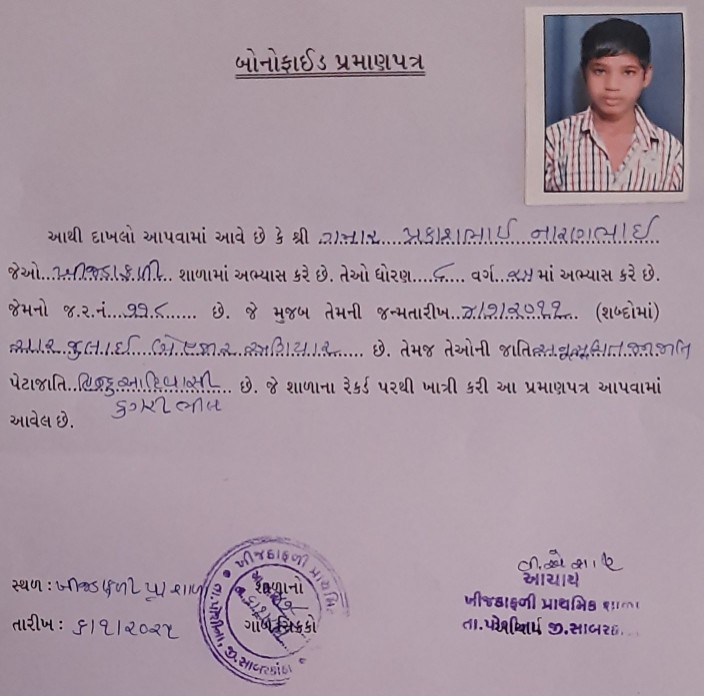 બોનોફાઈડ પ્રમાણપત્ર
આથી દાખલો આપવામાં આવે છે કે શ્રી ગમાર પ્રકાશભાઈ નારણભાઈ
જેઓ ખીજડાફળી શાળામાં અભ્યાસ કરે છે. તેઓ ધોરણ ૮ વર્ગ માં અભ્યાસ કરે છે.
જેમનો જ.ર.નં. ૧૧૮ છે. જે મુજબ તેમની જન્મતારીખ ૪/૭/૨૦૧૧ (શબ્દોમાં)
ચાર જુલાઈ બે હજાર અગિયાર છે. તેમજ તેઓની જાતિ અનુસૂચિત જનજાતિ
પેટાજાતિ હિન્દુ આદિવાસી છે. જે શાળાના રેકર્ડ પરથી ખાત્રી કરી આ પ્રમાણપત્ર આપવામાં
ડુંગરી ભીલ
આવેલ છે.
સ્થળ : ખીજડાફળી પ્રા શાળા
તારીખ :
ખીજડાફળી પ્રાથમિક
તા.પોશીના, જી.સાબરકાંઠા
શાળાનો
ગોળ સિક્કો
આચાર્ય
ખીજડાફળી પ્રાથમિક શાળા
જી.સાબરકાં